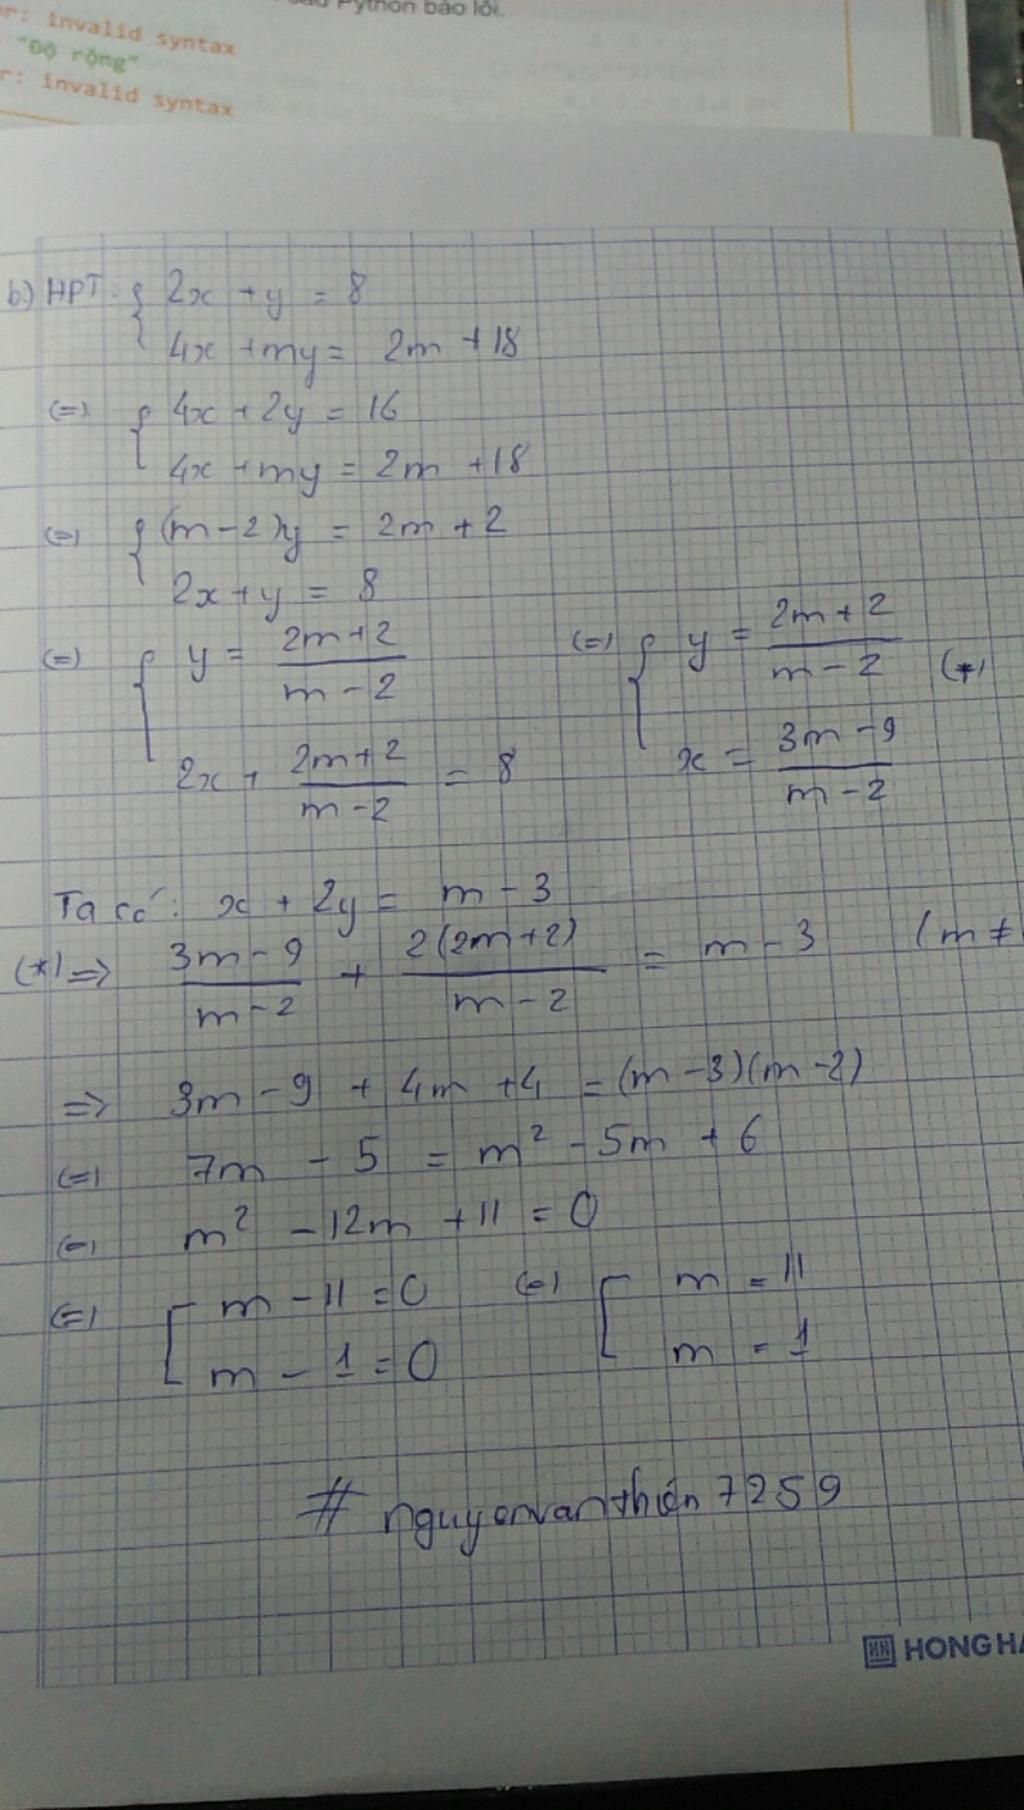 sao Python báo lỗi.
r: invalid syntax
"Độ rộng"
r: invalid syntax
b.) HPT: { 2x + y = 8
4x + my = 2m + 18
(=) { 4x + 2y = 16
4x + my = 2m + 18
(=) { (m - 2)y = 2m + 2
2x + y = 8
(=) { y = (2m + 2)/(m - 2) (=) { y = (2m + 2)/(m - 2) (*)
2x + (2m + 2)/(m - 2) = 8 x = (3m - 9)/(m - 2)
Ta có: x + 2y = m - 3
(*) => (3m - 9)/(m - 2) + 2(2m + 2)/(m - 2) = m - 3 (m ≠
=> 3m - 9 + 4m + 4 = (m - 3)(m - 2)
(=) 7m - 5 = m² - 5m + 6
(=) m² - 12m + 11 = 0
(=) [ m - 11 = 0 (=) [ m = 11
m - 1 = 0 m = 1
# nguyenvanthiên7259
HONG HA